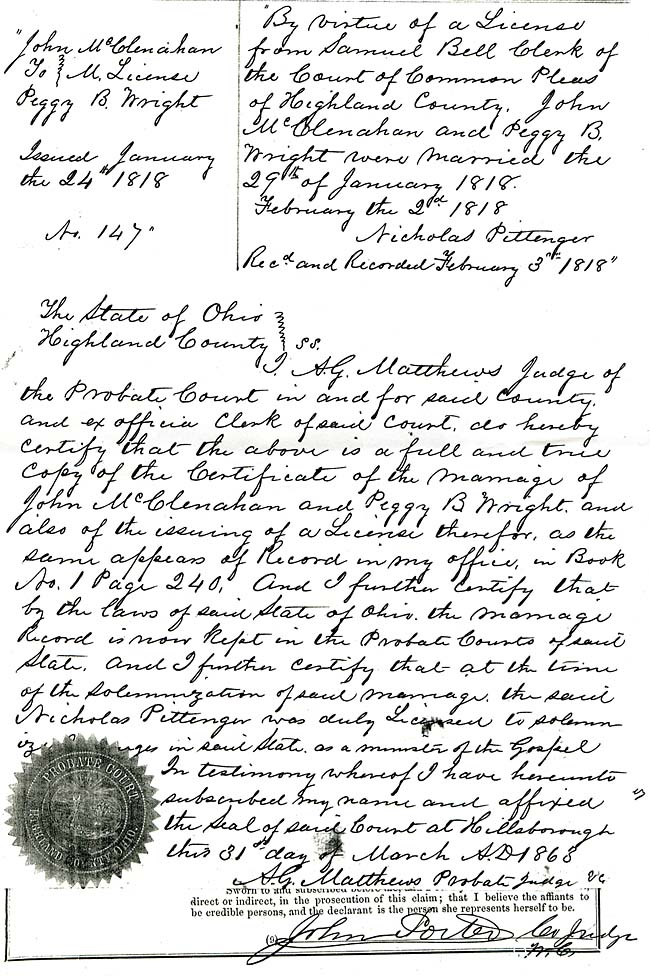 "John McClenahan
To } M. License
Peggy B. Wright
Issued January
the 24th 1818
No. 147"
"By virtue of a License
from Samuel Bell Clerk of
the Court of Common Pleas
of Highland County. John
McClenahan and Peggy B.
Wright were married the
29th of January 1818.
February the 2d 1818
Nicholas Pittenger
Recd and Recorded February 3rd 1818"
The State of Ohio }
Highland County } ss.
I A.G. Matthews Judge of
the Probate Court in and for said County,
and ex officia Clerk of said Court, do hereby
certify that the above is a full and true
Copy of the Certificate of the marriage of
John McClenahan and Peggy B Wright. and
also of the issuing of a License therefor, as the
same appears of Record in my office, in Book
No. 1 Page 240, And I further certify that
by the laws of said State of Ohio. the marriage
Record is now kept in the Probate Courts of said
State. And I further certify that at the time
of the solemnization of said marriage. the said
Nicholas Pittenger was duly Licensed to solemn
in said State. as a minister of the Gospel
In testimony whereof I have hereunto
subscribed my name and affixed
the Seal of said Court at Hillsborough
this 31st day of March A.D 1863
A.G. Matthews Probate Judge &c
PROBATE COURT
HIGHLAND COUNTY OHIO.
Sworn to and subscribed before me,
direct or indirect, in the prosecution of this claim; that I believe the affiants to
be credible persons, and the declarant is the person she represents herself to be.
(9) John Porter Co Judge
W.C.